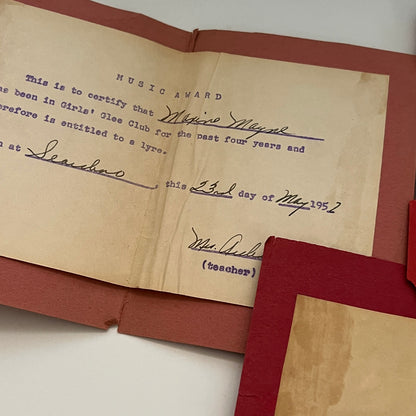 MUSIC AWARD
This is to certify that Maxine Mayne
as been in Girls' Glee Club for the past four years and
erefore is entitled to a lyre.
n at
, this 23rd day of May 1952
Mrs.
(teacher)